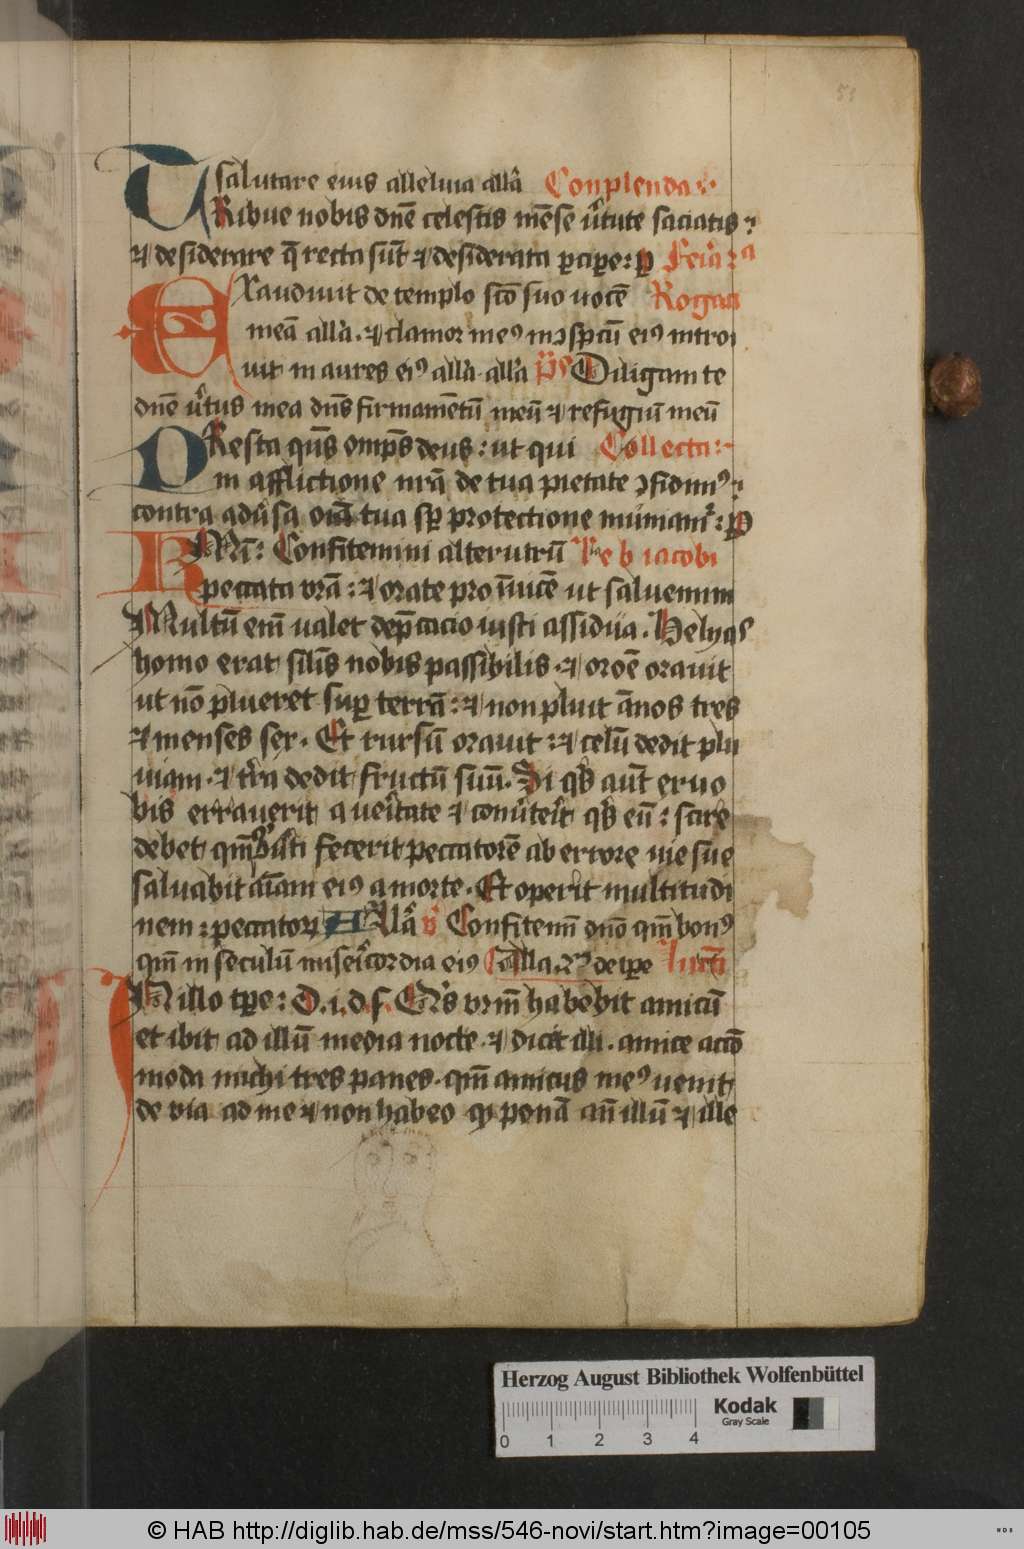 51
salutare eius alleluia allā Conplenda
TRibue nobis dn̄e celestis mēse v̓tute saciatis:
⁊ desiderare q̄ recta sūt ⁊ desiderata ꝑcipe: ꝑ Feria 2a
EXaudiuit de templo scō suo uocē Rogac̄
meā allā. ⁊ clamor meꝰ in ↄspc̄u eiꝰ introi
uit in aures eiꝰ allā allā p̄s Diligam te
dn̄e v̓tus mea dn̄s firmamētū meū ⁊ refugiū meū
PResta qs̄ omp̄s deus: ut qui Collecta:
in afflictione nr̄a de tua pietate ↄfidimꝰ:
contra aduersa oīa tua sp̄ protectione muniamr̄: ꝑ
KMi: Confitemini alterutrū Le b iacobi
peccata vr̄a: ⁊ orate pro inuicē ut saluemini
Multū eni ualet dep̄cacio iusti assidua. Helyas
homo erat silis nobis passibilis. ⁊ oroē orauit
ut nō plueret sup̱ terrā: ⁊ non pluit ānos tres
⁊ menses sex. Et rursū orauit: ⁊ celū dedit plu
uiam. ⁊ tr̄a dedit fructū suū. Si qs̄ aūt ex uo
bis errauerit a ueritate ⁊ conūterit qs̄ eū: scire
debet qm̄ qui fecerit peccatorē ab errore uie sue
saluabit aīam eiꝰ a morte. Et operit multitudi
nem: peccatorꝝ Allā v̓ Confitemī dn̄o qm̄ bonꝰ
qm̄ in seculū misericordia eiꝰ Alla de tp̄e Luce
IN illo tp̄e: D. i. d. s. Qis vr̄m habebit amicū
et ibit ad illū media nocte. ⁊ dicit illi. amice acco
moda michi tres panes. qm̄ amicus meꝰ uenit
de via ad me ⁊ non habeo qd ponā an̄ illū ⁊ ille
Herzog August Bibliothek Wolfenbüttel
Kodak
Gray Scale
0 1 2 3 4
© HAB http://diglib.hab.de/mss/546-novi/start.htm?image=00105